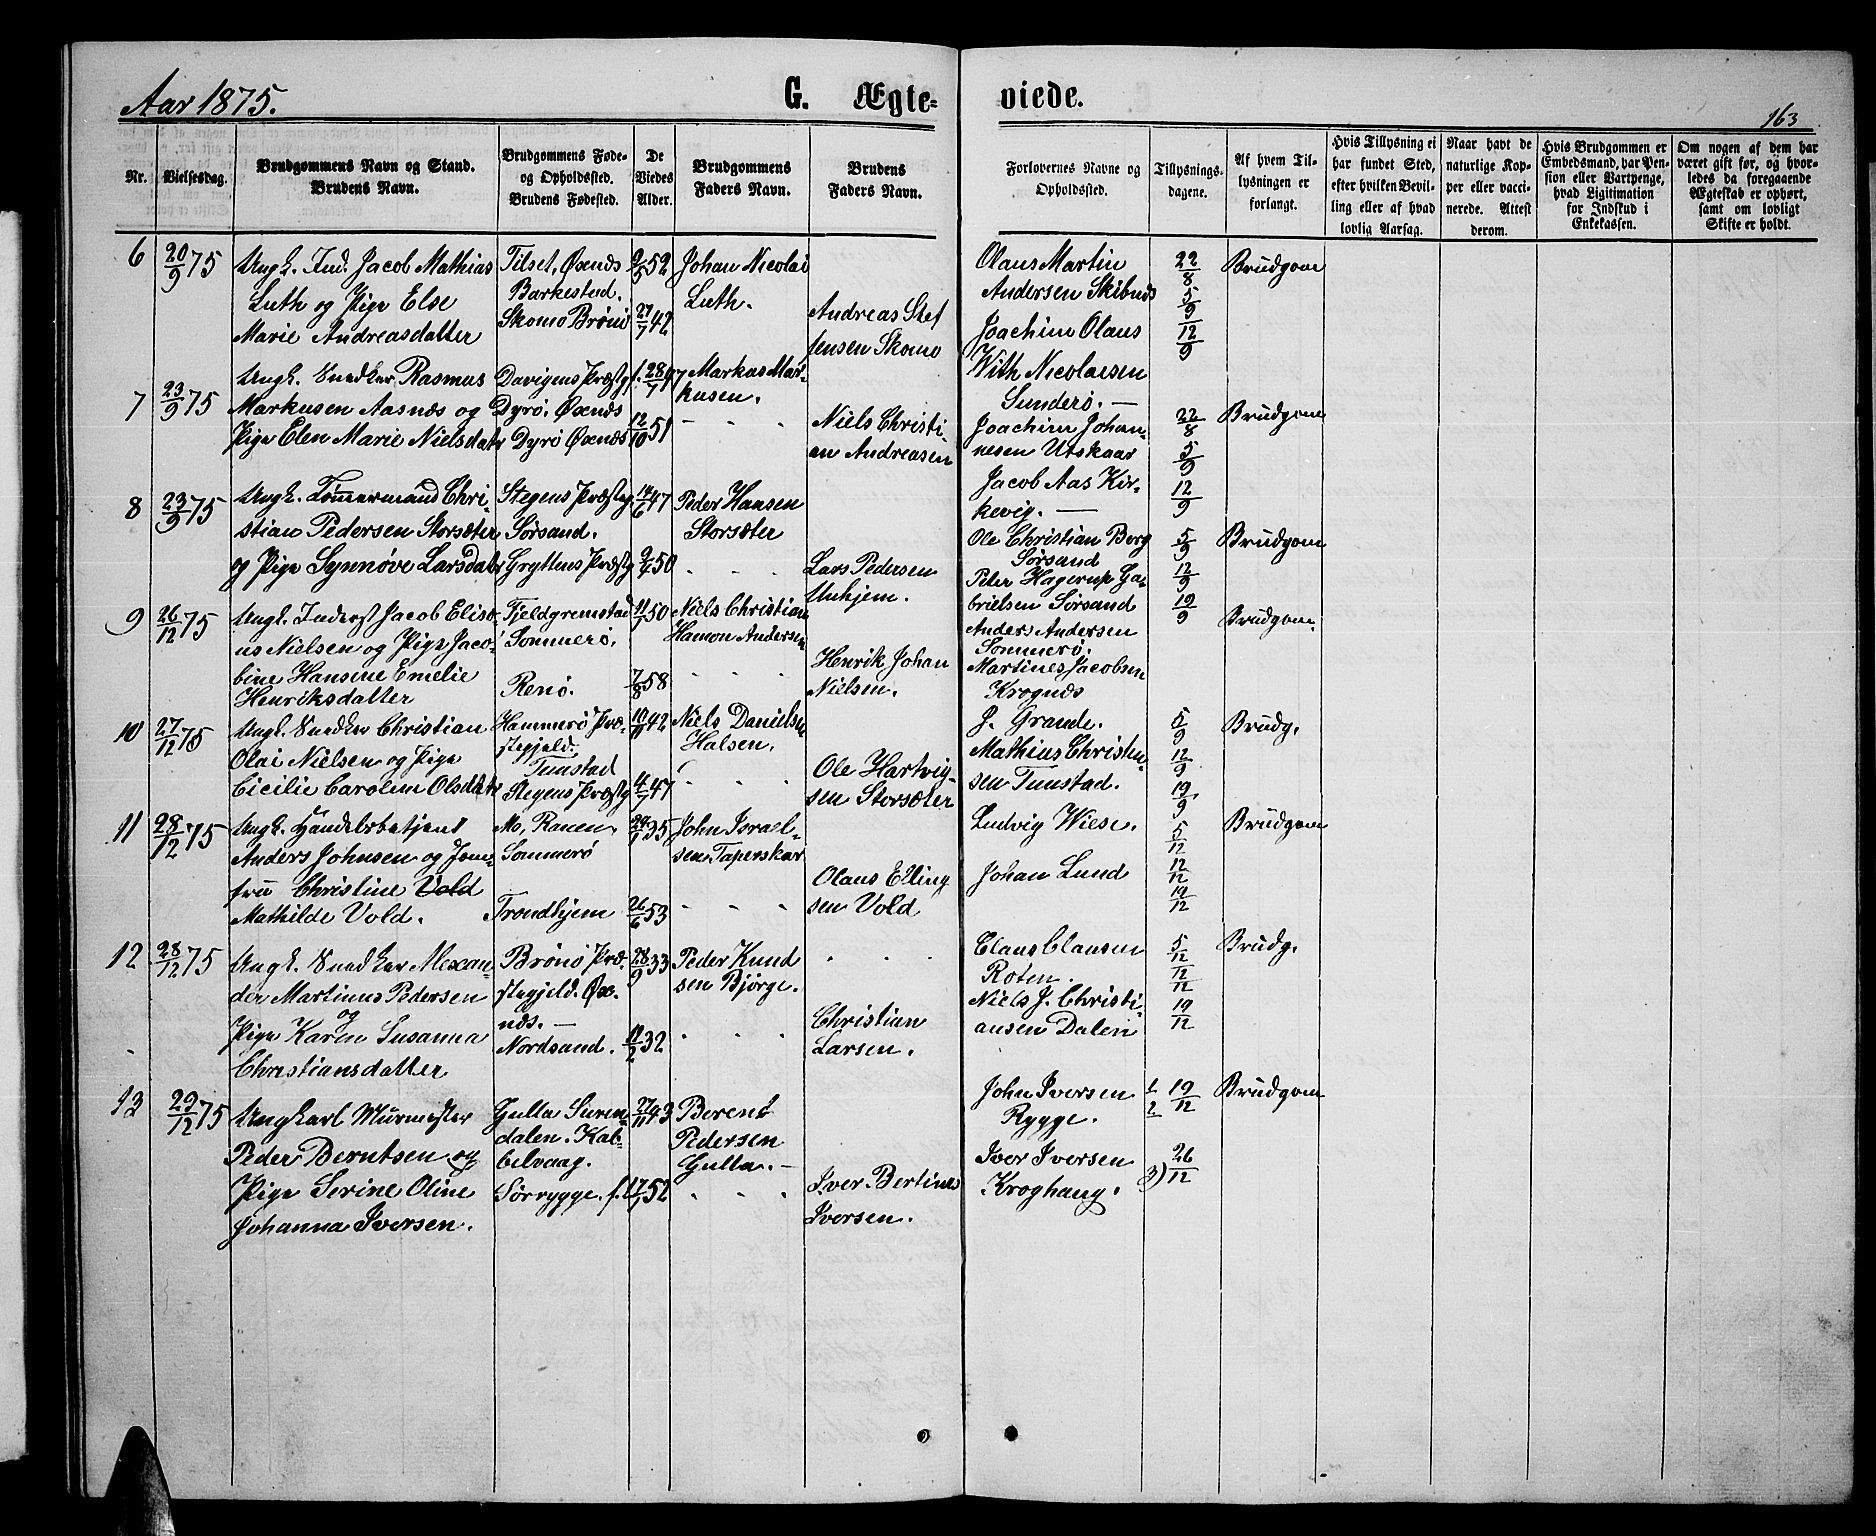 Aar 1875.
G. Ægte-
viede.
163
Nr.
Vielsesdag.
Brudgommens Navn og Stand.
Brudens Navn.
Brudgommens Føde-
og Opholdssted.
Brudens Fødested.
De
Viedes
Alder.
Brudgommens
Faders Navn.
Brudens
Faders Navn.
Forlovernes Navne og
Opholdssted.
Tillysnings-
dagene.
Af hvem Til-
lysningen er
forlangt.
Hvis Tillysning ei
har fundet Sted,
efter hvilken Bevil-
ling eller af hvad
lovlig Aarsag.
Naar havt de
naturlige Kop-
per eller vacci-
nerede. Attest
derom.
Hvis Brudgommen er
Embedsmand, har Pen-
sion eller Vartpenge,
hvad Ligitimation
for Indskud i
Enkekassen.
Om nogen af dem har
været gift før, og hvor-
ledes da foregaaende
Ægteskab er ophørt,
samt om lovligt
Skifte er holdt.
6
20/9 75
Ungk. Ind. Jacob Mathias
Luth og Pige Else
Marie Andreasdatter
Tilset, Øxnds
Barkestad.
Skomo Brönö
2/5 52
27/7 42
Johan Nicolai
Luth.
Andreas Stef
fensen Skomo
Olaus Martin
Andersen Skibnds
Joachim Olaus
With Nicolaisen
Sunderö. —
22/8
5/9
12/9
Brudgom
7
23/9 75
Ungk. Snedker Rasmus
Markusen Aasnæs og
Pige Elen Marie Nielsdatr
Davigens Præstg
Dyrö, Øxnds
Dyrö Øxnds
f. 28/7 47
12/10 51
Markus Mar-
kusen.
Niels Christi-
an Andreasen
Joachim Johan-
nesen Utskaar
Jacob Aas Kir-
kevig. —
22/8
5/9
12/9
Brudgom
8
23/9 75
Ungk. Tømmermand Chri-
stian Pedersen Storsæter
og Pige Synnøve Larsdatr
Stegens Præstg
Sørsand.
Gryttens Præstg
14/6 47
9/7 50
Peder Hansen
Storsæter
Lars Pedersen
Unhjem.
Ole Christian Borg
Sørsand
Peter Hagerup Ga-
brielsen Sørsand
5/9
12/9
19/9
Brudgom
9
26/12 75
Ungk. Inderst Jacob Elise-
us Nielsen og Pige Jaco-
bine Hansine Emelie
Henriksdatter
Fjeldgremstad
Sommerö.
Renö.
11/7 50
7/8 58
Niels Christian
Hamon Andersen
Henrik Johan
Nielsen.
Anders Andersen
Sommerö.
Martines Jacobsen
Krognds
Brudgom.
10
27/12 75
Ungk. Snedker Christian
Olai Nielsen og Pige
Cicilie Caroline Olsdatr
Hammerö Præ-
stegjeld.
Tunstad
Stegens Præstg
10/11 42
4/7 47
Niels Danielsen
Halsen.
Ole Hartvig-
sen Storsæter
J. Grande.
Mathias Christen-
sen Tunstad.
5/9
12/9
19/9
Brudg.
11
28/12 75
Ungk. Handelsbetjent
Anders Johnsen og Jom-
fru Christine Vold
Mathilde Vold.
Mo, Ranen,
Sommerö
Trondhjem
24/1 35
26/6 53
John Israel-
sen Taperskar
Olaus Elling
sen Vold
Ludvig Wiese.
Johan Lund
5/12
12/12
19/12
Brudgom
12
28/12 75
Ungk. Snedker Alexan-
der Martinus Pedersen
og
Pige Karen Susanna
Christiansdatter
Brönö Præ-
stegjeld. Øx-
nds. —
Nordsand.
28/9 33
11/2 32
Peder Knud
sen Bjørge.
Christian
Larsen.
Claus Clausen
Roten.
Niels J. Christi-
ansen Dalen
5/12
12/12
19/12
Brudg.
13
29/12 75
Ungkarl Murmester
Peder Berntsen og
Pige Serine Oline
Johanna Iversen.
Gulla Suren-
dalen. Kab-
belvaag.
Sørrygge.
27/11 43
f. 17/7 52
Berent
Pedersen
Gulla. —
Iver Bertines
Iversen.
John Iversen
Rygge.
Iver Iversen
Kroghaug.
1
2 19/12
3) 26/12
Brudgom